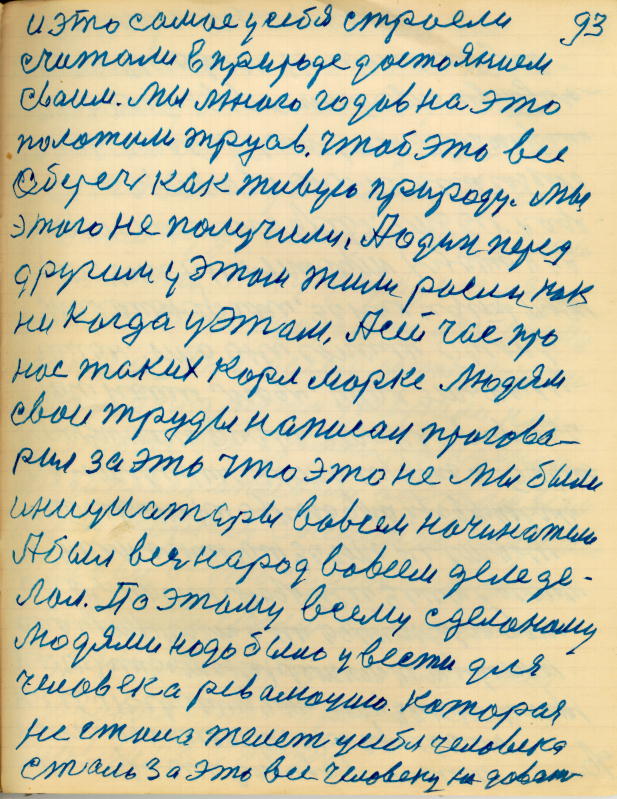 и это самое у себя строели 93
считали в природе достоянием
сваим. Мы много годов на это
положили труав. чтоб это все
сберечь как живую природу. Мы
этого не получили, А один перед
другим у этом жили росли как
ни когда у этам. А сей час про
нас таких Карл Маркс людям
свои труды написал прогова-
рил за это что это не мы были
инициатары вовсем начинатели
А был весь народ вовсем деле де-
лал. По этому всему сделоному
людями надо было увести для
человека революцию. Которая
не стала жалет у себя человека
стала за это все человеку